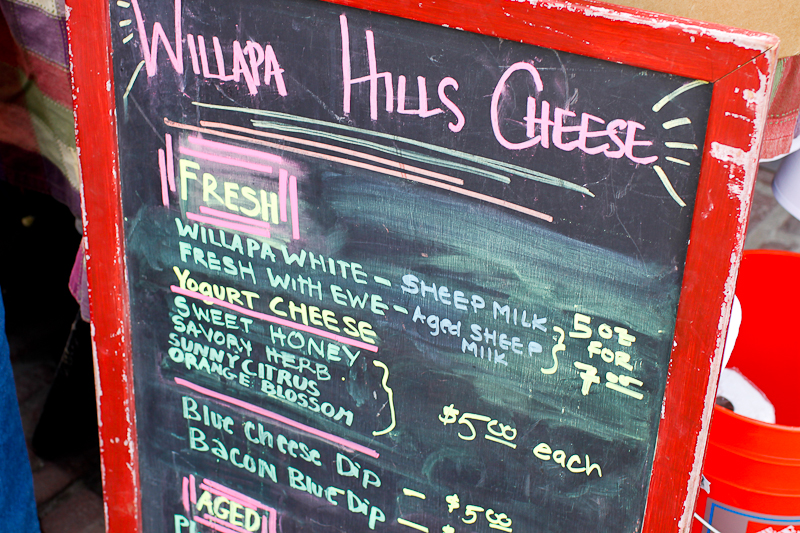 Willapa Hills Cheese
FRESH
WILLAPA WHITE - SHEEP MILK
FRESH WITH EWE - Aged SHEEP MILK
5 oz FOR 7.00
YOGURT CHEESE
SWEET HONEY
SAVORY HERB
SUNNY CITRUS
ORANGE BLOSSOM
$5.00 each
Blue Cheese Dip - $5.00
Bacon Blue Dip -
AGED